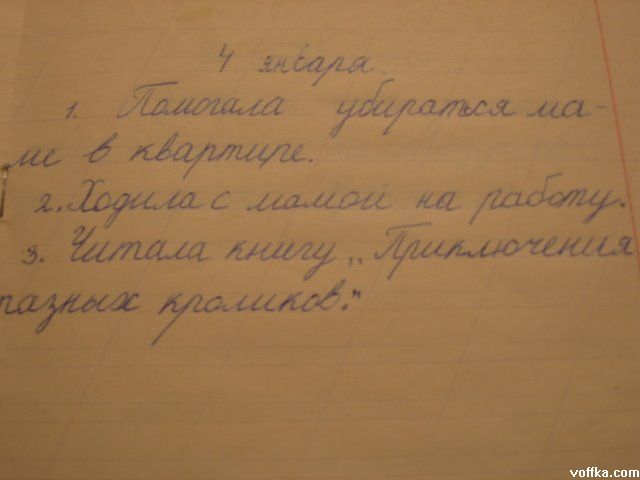 4 января.
1. Помогала убираться ма-
ме в квартире.
2. Ходила с мамой на работу.
3. Читала книгу „Приключения
разных кроликов."
voffka.com